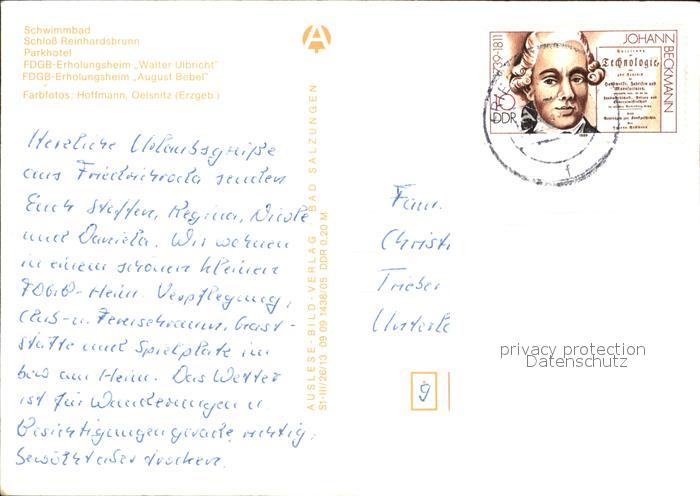 Schwimmbad
Schloß Reinhardsbrunn
Parkhotel
FDGB-Erholungsheim „Walter Ulbricht"
FDGB-Erholungsheim „August Bebel"
Farbfotos: Hoffmann, Oelsnitz (Erzgeb.)
Herzliche Urlaubsgrüße
aus Friedrichroda senden
Euch Steffen, Regina, Nicole
und Daniela. Wir wohnen
in einem schönen kleinen
FDGB-Heim. Verpflegung,
Club- u. Fernsehraum, Gast-
stätte und Spielplatz im
bzw am Heim. Das Wetter
ist für Wanderungen u.
Besichtigungen gerade richtig,
bewölkt aber trocken.
AUSLESE-BILD-VERLAG · BAD SALZUNGEN
S1-III/26/13 09 09 1438/05 DDR 0,20 M
1739-1811
JOHANN BECKMANN
Technologie,
DDR
1989
Fam.
Christi
Trieber
Unterlo
9
privacy protection
Datenschutz